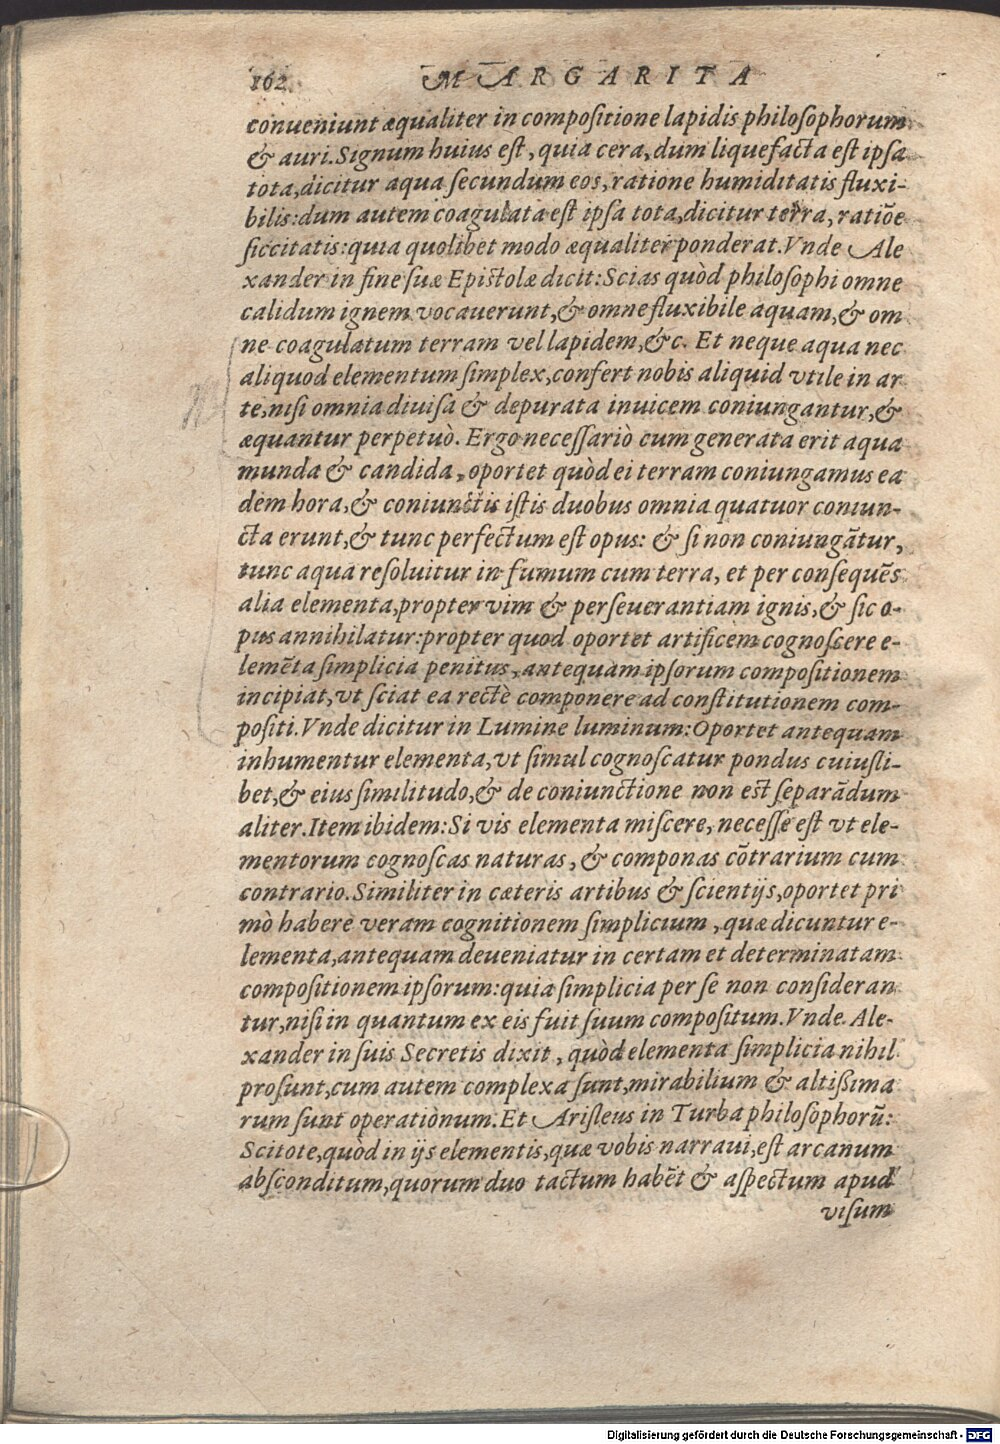 162 MARGARITA
conueniunt æqualiter in compoſitione lapidis philoſophorum
& auri. Signum huius eſt, quia cera, dum liquefacta eſt ipſa
tota, dicitur aqua ſecundum eos, ratione humiditatis fluxi-
bilis: dum autem coagulata eſt ipſa tota, dicitur terra, ratiōe
ſiccitatis: quia quolibet modo æqualiter ponderat. Vnde Ale
xander in fine ſuæ Epiſtolæ dicit: Scias quòd philoſophi omne
calidum ignem vocauerunt, & omne fluxibile aquam, & om
ne coagulatum terram vel lapidem, &c. Et neque aqua nec
aliquod elementum ſimplex, confert nobis aliquid vtile in ar
te, niſi omnia diuiſa & depurata inuicem coniungantur, &
æquantur perpetuò. Ergo neceſſariò cum generata erit aqua
munda & candida, oportet quòd ei terram coniungamus ea
dem hora, & coniunctis iſtis duobus omnia quatuor coniun-
cta erunt, & tunc perfectum eſt opus: & ſi non coniungātur,
tunc aqua reſoluitur in fumum cum terra, et per conſequēs
alia elementa, propter vim & perſeuerantiam ignis, & ſic o-
pus annihilatur: propter quod oportet artificem cognoſcere e-
lemēta ſimplicia penitus, antequam ipſorum compoſitionem
incipiat, vt ſciat ea rectè componere ad conſtitutionem com-
poſiti. Vnde dicitur in Lumine luminum: Oportet antequam
inhumentur elementa, vt ſimul cognoſcatur pondus cuiuſli-
bet, & eius ſimilitudo, & de coniunctione non eſt ſeparādum
aliter. Item ibidem: Si vis elementa miſcere, neceſſe eſt vt ele-
mentorum cognoſcas naturas, & componas cōtrarium cum
contrario. Similiter in cæteris artibus & ſcientijs, oportet pri
mò habere veram cognitionem ſimplicium, quæ dicuntur e-
lementa, antequam deueniatur in certam et determinatam
compoſitionem ipſorum: quia ſimplicia per ſe non conſideran
tur, niſi in quantum ex eis fuit ſuum compoſitum. Vnde Ale-
xander in ſuis Secretis dixit, quòd elementa ſimplicia nihil
proſunt, cum autem complexa ſunt, mirabilium & altißima
rum ſunt operatiònum. Et Ariſleus in Turba philoſophorū:
Scitote, quòd in ijs elementis, quæ vobis narraui, eſt arcanum
abſconditum, quorum duo tactum habēt & aſpectum apud
viſum
Digitalisierung gefördert durch die Deutsche Forschungsgemeinschaft - DFG